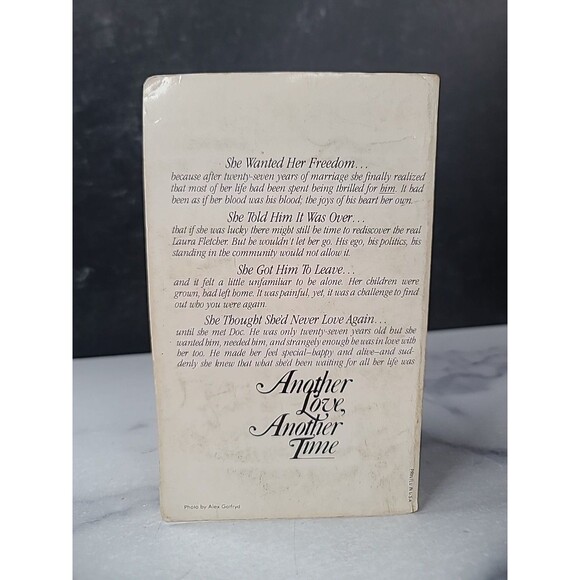 She Wanted Her Freedom...
because after twenty-seven years of marriage she finally realized
that most of her life had been spent being thrilled for him. It had
been as if her blood was his blood; the joys of his heart her own.
She Told Him It Was Over...
that if she was lucky there might still be time to rediscover the real
Laura Fletcher. But he wouldn't let her go. His ego, his politics, his
standing in the community would not allow it.
She Got Him To Leave...
and it felt a little unfamiliar to be alone. Her children were
grown, had left home. It was painful, yet, it was a challenge to find
out who you were again.
She Thought She'd Never Love Again...
until she met Doc. He was only twenty-seven years old but she
wanted him, needed him, and strangely enough he was in love with
her too. He made her feel special—happy and alive—and sud-
denly she knew that what she'd been waiting for all her life was
Another
Love,
Another
Time
Photo by Alex Gotfryd